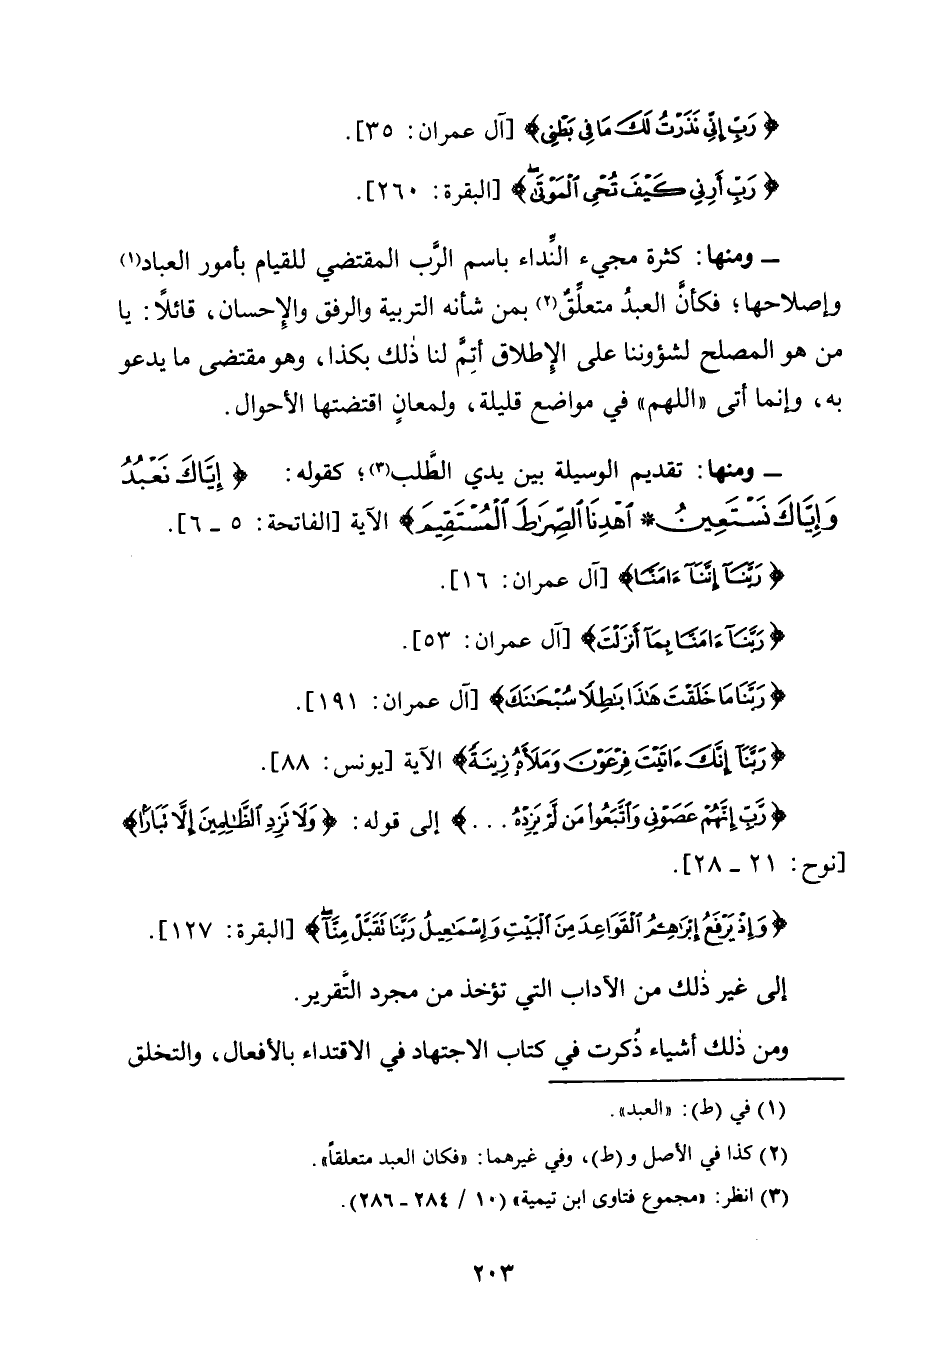 ﴿رَبِّ إِنِّي نَذَرْتُ لَكَ مَا فِي بَطْنِي﴾ [آل عمران: ٣٥].
﴿رَبِّ أَرِنِي كَيْفَ تُحْيِ الْمَوْتَىٰ﴾ [البقرة: ٢٦٠].
ـ ومنها: كثرة مجيء النِّداء باسم الرَّب المقتضي للقيام بأمور العباد(١)
وإصلاحها؛ فكأنَّ العبدُ متعلِّقٌ(٢) بمن شأنه التربية والرفق والإحسان، قائلًا: يا
من هو المصلح لشؤوننا على الإطلاق أتِمَّ لنا ذٰلك بكذا، وهو مقتضى ما يدعو
به، وإنما أتى «اللهم» في مواضع قليلة، ولمعانٍ اقتضتها الأحوال.
ـ ومنها: تقديم الوسيلة بين يدي الطَّلب(٣)؛ كقوله: ﴿إِيَّاكَ نَعْبُدُ
وَإِيَّاكَ نَسْتَعِينُ * اهْدِنَا الصِّرَٰطَ الْمُسْتَقِيمَ﴾ الآية [الفاتحة: ٥ ـ ٦].
﴿رَبَّنَآ إِنَّنَآ ءَامَنَّا﴾ [آل عمران: ١٦].
﴿رَبَّنَآ ءَامَنَّا بِمَآ أَنزَلْتَ﴾ [آل عمران: ٥٣].
﴿رَبَّنَا مَا خَلَقْتَ هَٰذَا بَٰطِلًا سُبْحَٰنَكَ﴾ [آل عمران: ١٩١].
﴿رَبَّنَآ إِنَّكَ ءَاتَيْتَ فِرْعَوْنَ وَمَلَأَهُ زِينَةً﴾ الآية [يونس: ٨٨].
﴿رَّبِّ إِنَّهُمْ عَصَوْنِي وَاتَّبَعُوا مَن لَّمْ يَزِدْهُ . . .﴾ إلى قوله: ﴿وَلَا تَزِدِ الظَّٰلِمِينَ إِلَّا تَبَارًا﴾
[نوح: ٢١ ـ ٢٨].
﴿وَإِذْ يَرْفَعُ إِبْرَٰهِـۧمُ الْقَوَاعِدَ مِنَ الْبَيْتِ وَإِسْمَٰعِيلُ رَبَّنَا تَقَبَّلْ مِنَّآ﴾ [البقرة: ١٢٧].
إلى غير ذٰلك من الآداب التي تؤخذ من مجرد التَّقرير.
ومن ذٰلك أشياء ذُكرت في كتاب الاجتهاد في الاقتداء بالأفعال، والتخلق
(١) في (ط): «العبد».
(٢) كذا في الأصل و(ط)، وفي غيرهما: «فكان العبد متعلقاً».
(٣) انظر: «مجموع فتاوى ابن تيمية» (١٠ / ٢٨٤ ـ ٢٨٦).
٢٠٣